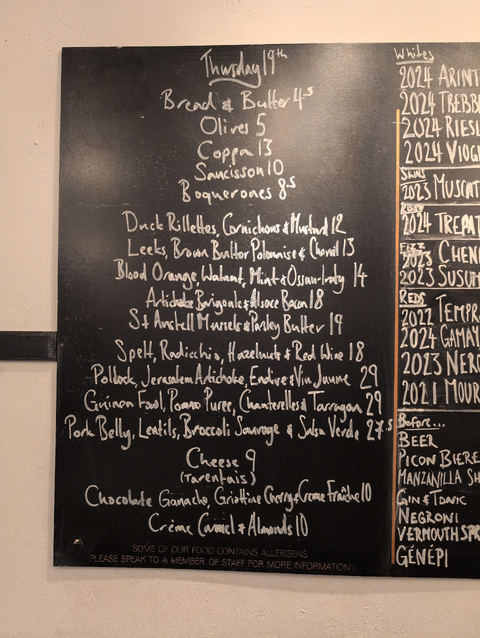 Thursday 19th
Bread & Butter 4.5
Olives 5
Coppa 13
Saucisson 10
Boquerones 8.5
Duck Rillettes, Cornichons & Mustard 12
Leeks, Brown Butter Polonaise & Chervil 13
Blood Orange, Walnut, Mint & Ossau-Iraty 14
Artichoke Barigoule & Alsace Bacon 18
St Austell Mussels & Parsley Butter 19
Spelt, Radicchio, Hazelnuts & Red Wine 18
Pollock, Jerusalem Artichoke, Endive & Vin Jaune 29
Guinea Fowl, Pomme Puree, Chanterelles & Tarragon 29
Pork Belly, Lentils, Broccoli Sauvage & Salsa Verde 27.5
Cheese 9
(Tarentais)
Chocolate Ganache, Griottine Cherry & Creme Fraîche 10
Crème Caramel & Almonds 10
SOME OF OUR FOOD CONTAINS ALLERGENS
PLEASE SPEAK TO A MEMBER OF STAFF FOR MORE INFORMATION
Whites
2024 ARINT
2024 TREBB
2024 RIESL
2024 VIOG
SKINS
2023 MUSCAT
ROSÉ
2024 TREPAT
FIZZ
2023 CHENI
2023 SUSUM
REDS
2022 TEMPR
2024 GAMAY
2023 NERO
2021 MOUR
Before...
BEER
PICON BIERE
MANZANILLA SH
GIN & TONIC
NEGRONI
VERMOUTH SPR
GÉNÉPI